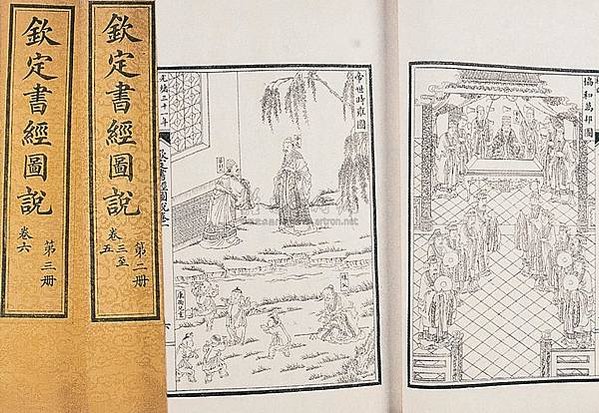 欽定書經圖說
第三冊
卷六
欽定書經圖說
第二冊
卷三至五
帝世時雍圖
欽定書經圖說卷一
協和萬邦圖